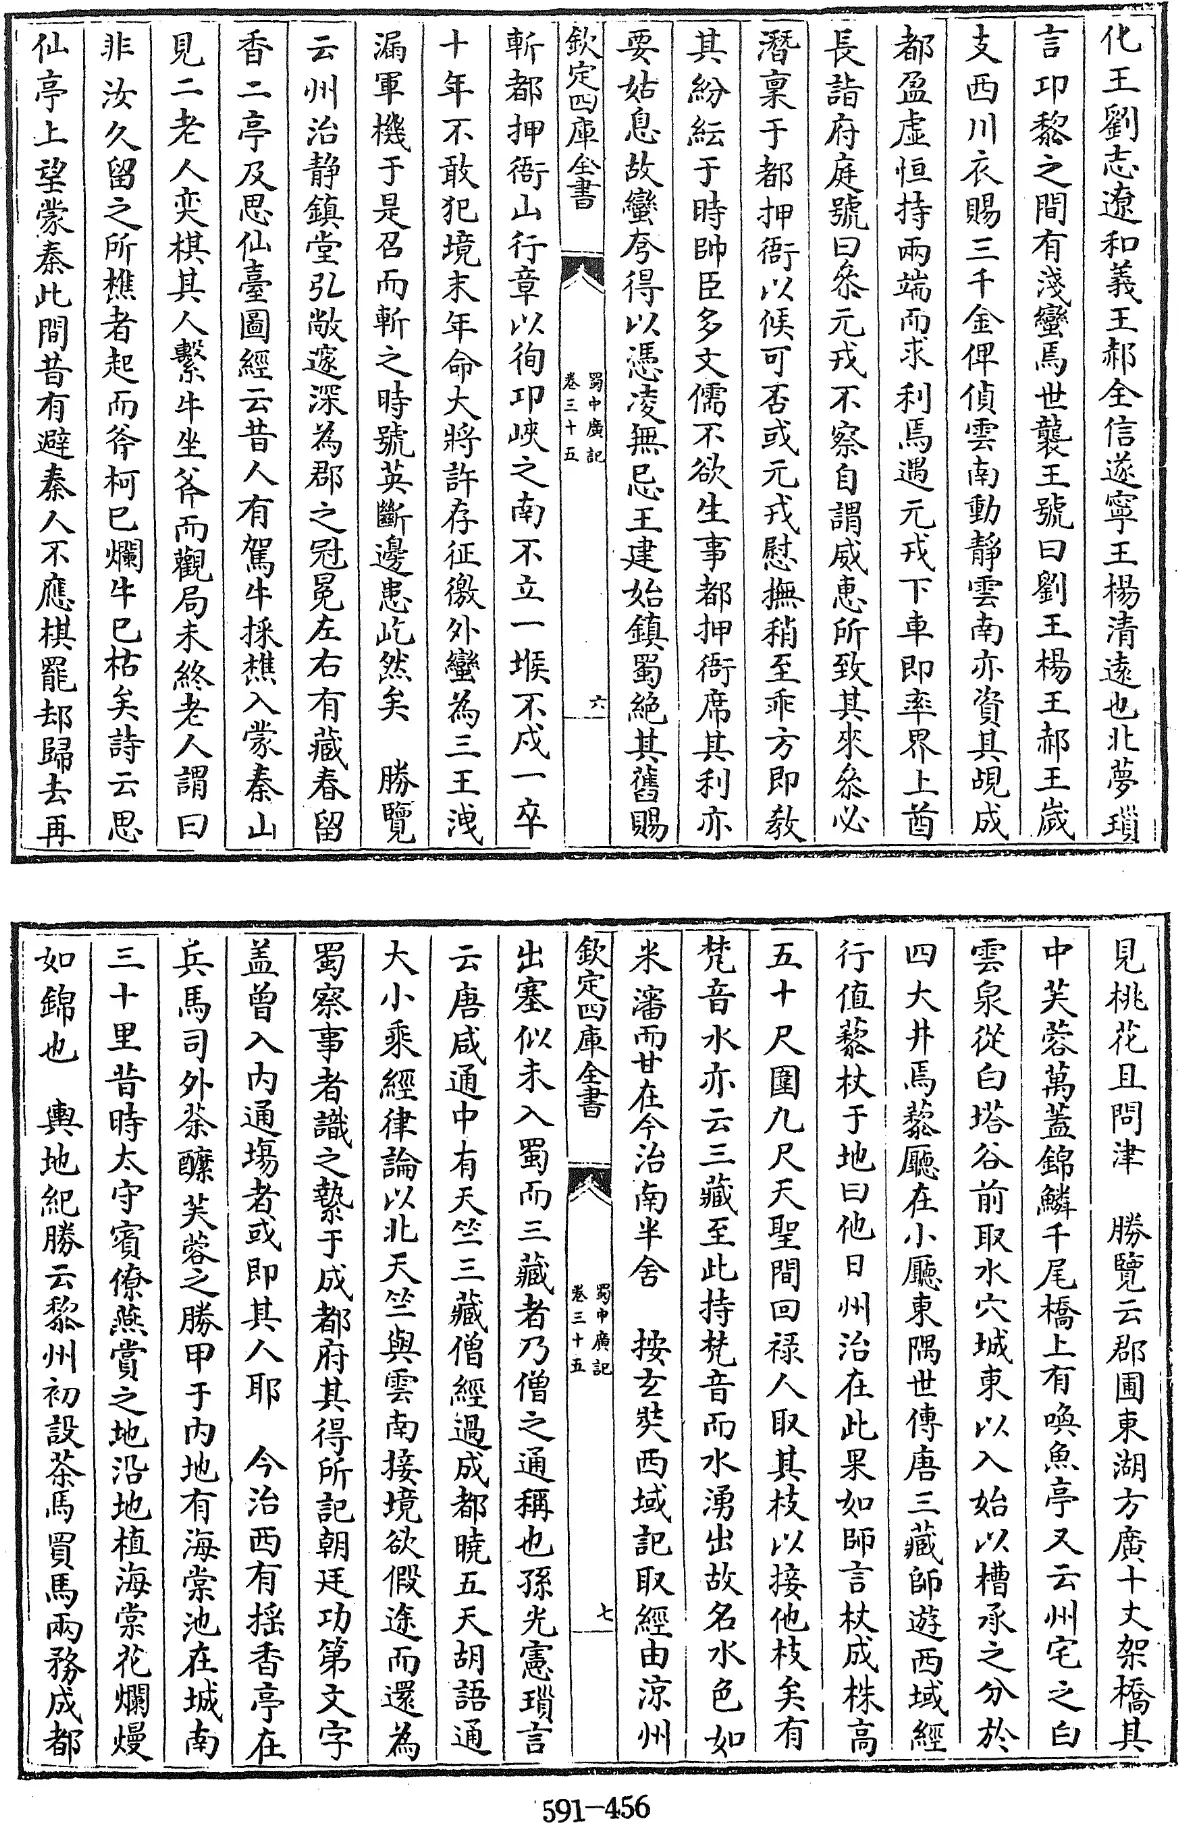 化王劉志遼和義王郝全信遂寧王楊清遠也北夢瑣
言卭黎之間有淺蠻焉世襲王號曰劉王楊王郝王嵗
支西川衣賜三千金俾偵雲南動靜雲南亦資其覘成
都盈虚恒持兩端而求利焉遇元戎下車即率界上酋
長詣府庭號曰叅元戎不察自謂威惠所致其來叅必
潛稟于都押衙以候可否或元戎慰撫稍至乖方即教
其紛紜于時帥臣多文儒不欲生事都押衙席其利亦
要姑息故蠻夸得以憑凌無忌王建始鎮蜀絶其舊賜
欽定四庫全書
蜀中廣記
卷三十五
六
斬都押衙山行章以徇卭峽之南不立一堠不戍一卒
十年不敢犯境末年命大將許存征徼外蠻為三王洩
漏軍機于是召而斬之時號英斷邊患屹然矣　勝覽
云州治静鎮堂弘敞邃深為郡之冠冕左右有藏春留
香二亭及思仙臺圖經云昔人有駕牛採樵入蒙秦山
見二老人奕棋其人繫牛坐斧而觀局未終老人謂曰
非汝久留之所樵者起而斧柯已爛牛已枯矣詩云思
仙亭上望蒙秦此間昔有避秦人不應棋罷却歸去再
見桃花且問津　勝覽云郡圃東湖方廣十丈架橋其
中芙蓉萬蓋錦鱗千尾橋上有喚魚亭又云州宅之白
雲泉從白塔谷前取水穴城東以入始以槽承之分於
四大井焉藜廳在小廳東隅世傳唐三藏師遊西域經
行值藜杖于地曰他日州治在此果如師言杖成株高
五十尺圍九尺天聖間回禄人取其枝以接他枝矣有
梵音水亦云三藏至此持梵音而水湧出故名水色如
米瀋而甘在今治南半舍　按玄奘西域記取經由涼州
欽定四庫全書
蜀中廣記
卷三十五
七
出塞似未入蜀而三藏者乃僧之通稱也孫光憲瑣言
云唐咸通中有天竺三藏僧經過成都曉五天胡語通
大小乘經律論以北天竺與雲南接境欲假途而還為
蜀察事者識之縶于成都府其得所記朝廷功第文字
盖曾入内通塲者或即其人耶　今治西有揺香亭在
兵馬司外荼䕷芙蓉之勝甲于内地有海棠池在城南
三十里昔時太守賓僚燕賞之地沿地植海棠花爛熳
如錦也　輿地紀勝云黎州初設茶馬買馬兩務成都
591-456